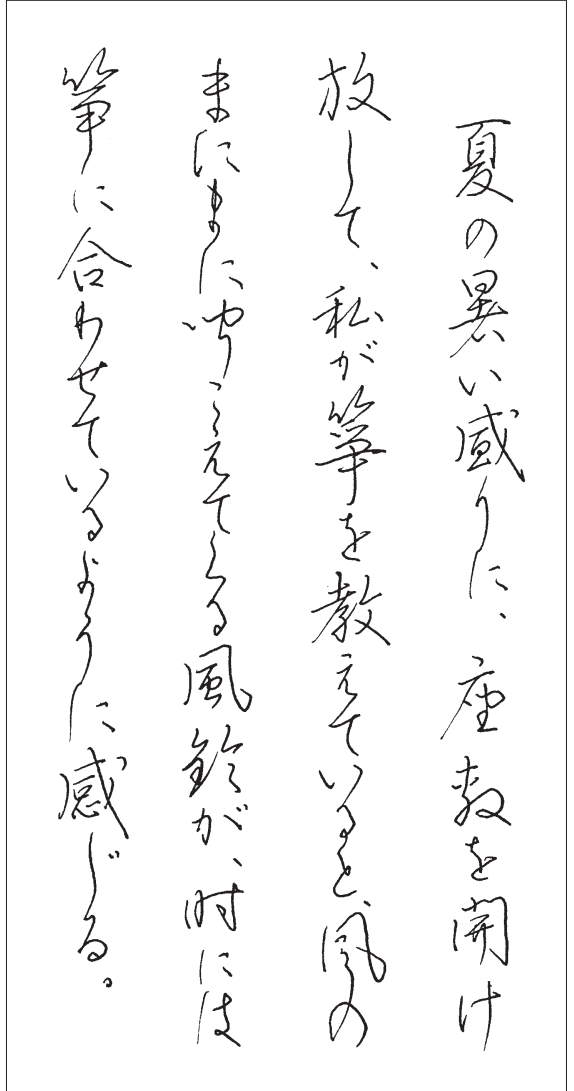 夏の暑い盛りに、座敷を開け
放して、私が箏を教えていると、風の
まにまに聞こえてくる風鈴が、時には
箏に合わせているように感じる。